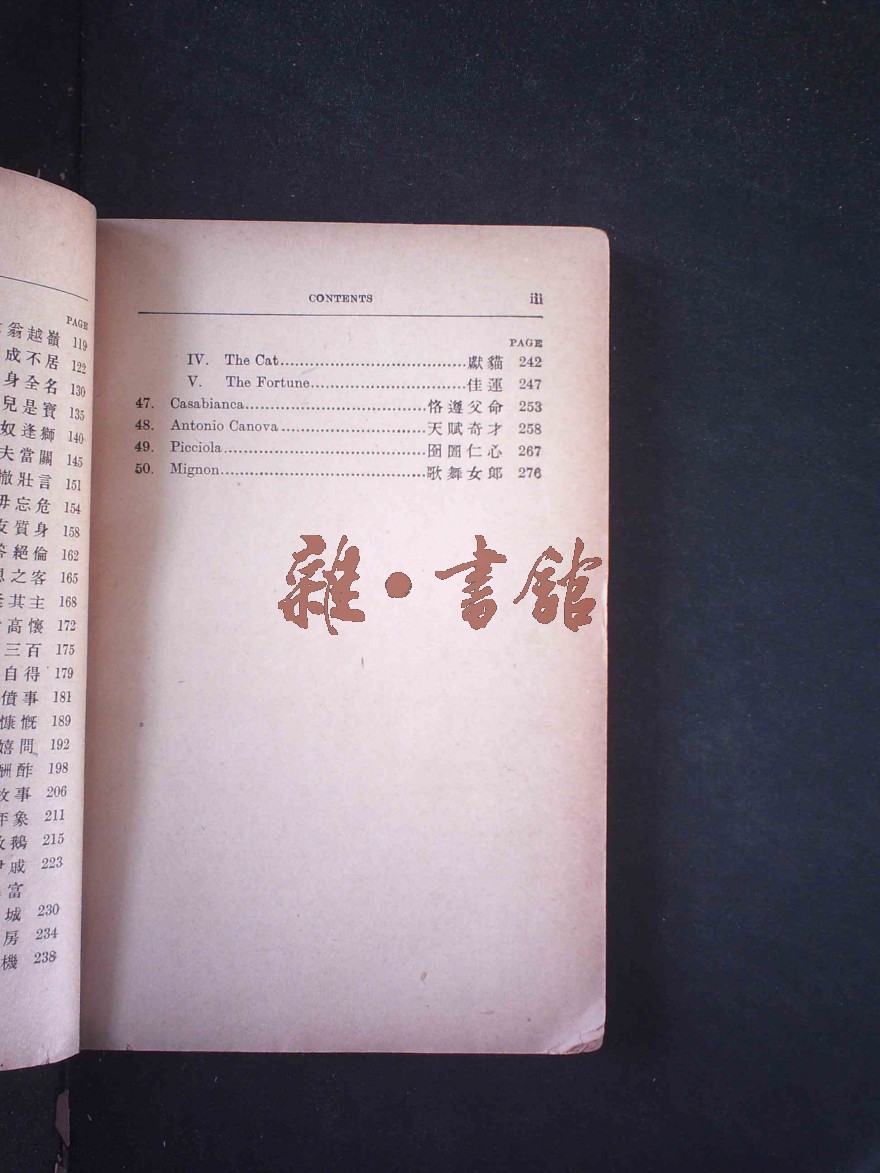 PAGE
翁越嶺 119
成不居 122
身全名 130
兒是寶 135
奴逢獅 140
夫當關 145
壯言 151
毋忘危 154
友質身 158
絕倫 162
之客 165
其主 168
高懷 172
三百 175
自得 179
僨事 181
慷慨 189
嬉問 192
酬酢 198
故事 206
年象 211
鵝 215
戚 223
富
城 230
房 234
機 238
CONTENTS iii
PAGE
IV. The Cat 獻貓 242
V. The Fortune 佳運 247
47. Casabianca 恪遵父命 253
48. Antonio Canova 天賦奇才 258
49. Picciola 囹圄仁心 267
50. Mignon 歌舞女郎 276
雜·書館